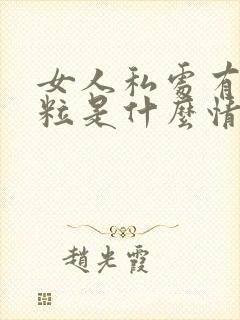 女人私處有
粒是什麼情
趙光霞